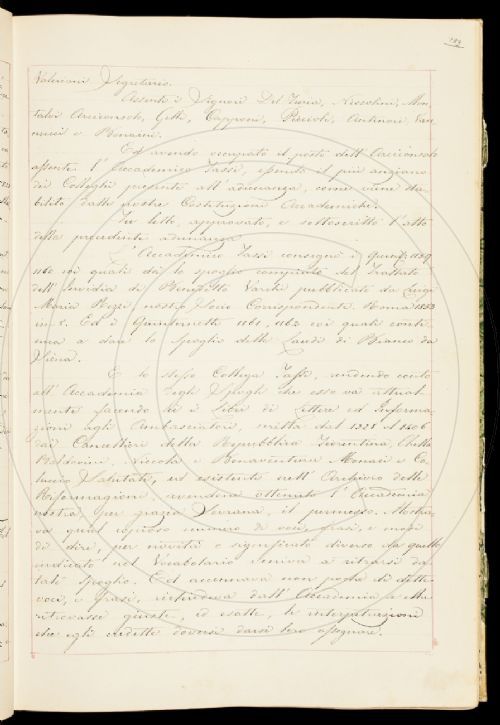 Valeriani Segretario.
Assenti i Signori Del Furia, Niccolini, Mon-
talvi Arciconsolo, Gelli, Capponi, Puccioli, Antinori, Van-
nucci e Bonaini.
Ed avendo occupato il posto dell'Arciconsolo
assente l'Accademico Tassi, essendo il più anziano
dei Colleghi presenti all'adunanza, come viene sta-
bilito dalle nostre Costituzioni Accademiche.
Fu letto, approvato, e sottoscritto l'atto
della precedente adunanza.
L'Accademico Tassi consegnò i Quint. 1159.
1160 coi quali dà lo spoglio compiuto del Trattato
dell'Invidia di Benedetto Varchi pubblicato da Luigi
Maria Rezzi nostro Socio Corrispondente. Roma 1853
in Ed i Quinternetti 1161, 1162 coi quali conti-
nua a dare lo Spoglio delle Laudi di Bianco da
Siena.
E lo stesso Collega Tassi, rendendo conto
all'Accademia degli Spogli che esso va attual-
mente facendo su i Libri di Lettere ed Informa-
zioni agli Ambasciatori, scritta dal 1328 al 1406
dai Cancellieri della Repubblica Fiorentina, Chello
Baldovini, Niccola e Bonaventura Monaci e Co-
luccio Salutati, ed esistente nell'Archivio delle
Riformagioni, avendone ottenuto l'Accademia
nostra, per grazia Sovrana, il permesso. Mostra-
va qual copioso numero di voci, frasi, e modi
di dire, per novità o significato diverso da quello
indicato nel Vocabolario veniva a ritrarsi da
tali Spoglio. Ed accennava non poche di dette
voci, e frasi, richiedeva dall'Accademia se
ritrovasse giuste, ed esatte, le interpretazioni
che egli credette doversi darsi loro assegnare.